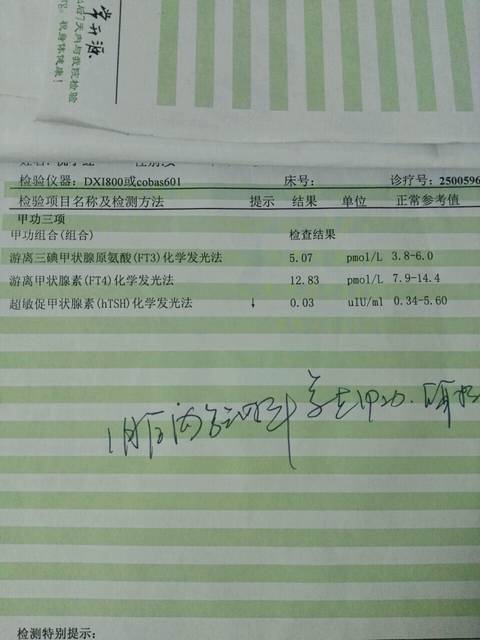 常开源
7天内与我院检验
祝身体健康！
检验仪器：DXI800或cobas601 床号： 诊疗号：2500596
检验项目名称及检测方法 提示 结果 单位 正常参考值
甲功三项
甲功组合(组合) 检查结果
游离三碘甲状腺原氨酸(FT3)化学发光法 5.07 pmol/L 3.8-6.0
游离甲状腺素(FT4)化学发光法 12.83 pmol/L 7.9-14.4
超敏促甲状腺素(hTSH)化学发光法 ↓ 0.03 uIU/ml 0.34-5.60
检测特别提示：